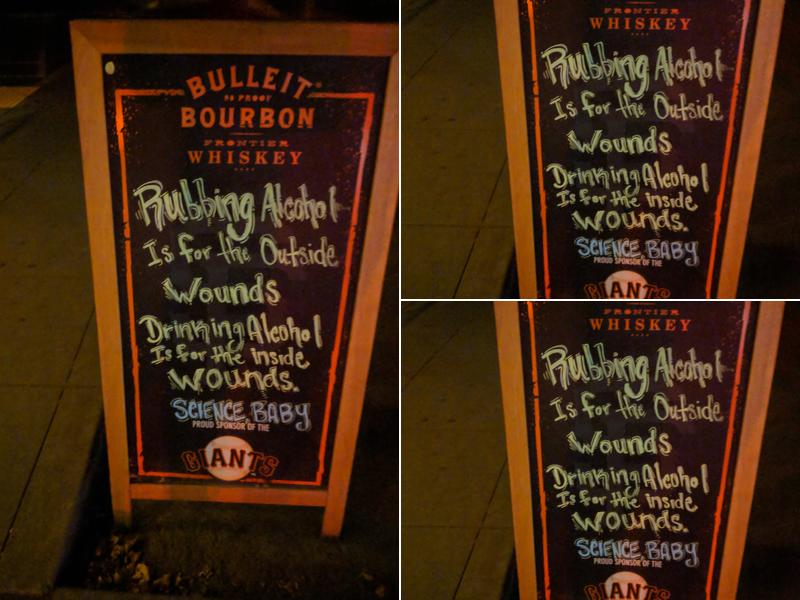 BULLEIT
90 PROOF
BOURBON
FRONTIER
WHISKEY
Rubbing Alcohol
Is for the Outside
Wounds
Drinking Alcohol
Is for the inside
Wounds.
SCIENCE, BABY
PROUD SPONSOR OF THE
GIANTS
FRONTIER
WHISKEY
Rubbing Alcohol
Is for the Outside
Wounds
Drinking Alcohol
Is for the inside
Wounds.
SCIENCE, BABY
PROUD SPONSOR OF THE
GIANTS
FRONTIER
WHISKEY
Rubbing Alcohol
Is for the Outside
Wounds
Drinking Alcohol
Is for the inside
Wounds.
SCIENCE, BABY
PROUD SPONSOR OF THE
GIANTS